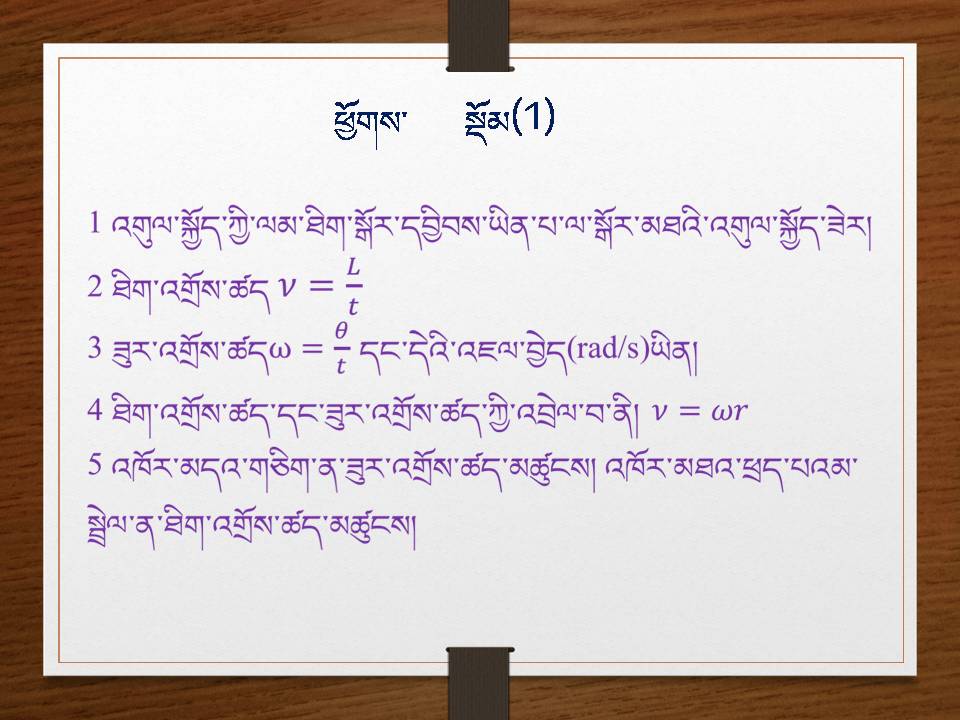 ཕྱོགས་ སྡོམ(1)
1 འགུལ་སྐྱོད་ཀྱི་ལམ་ཐིག་སྒོར་དབྱིབས་ཡིན་པ་ལ་སྒོར་མཐའི་འགུལ་སྐྱོད་ཟེར།
2 ཐིག་འགྲོས་ཚད 𝜈 = L/t
3 ཟུར་འགྲོས་ཚདω = θ/t དང་དེའི་འཇལ་བྱེད(rad/s)ཡིན།
4 ཐིག་འགྲོས་ཚད་དང་ཟུར་འགྲོས་ཚད་ཀྱི་འབྲེལ་བ་ནི། 𝜈 = ωr
5 འཁོར་མདའ་གཅིག་ན་ཟུར་འགྲོས་ཚད་མཚུངས། འཁོར་མཐའ་ཕྲད་པའམ་
སྦྲེལ་ན་ཐིག་འགྲོས་ཚད་མཚུངས།